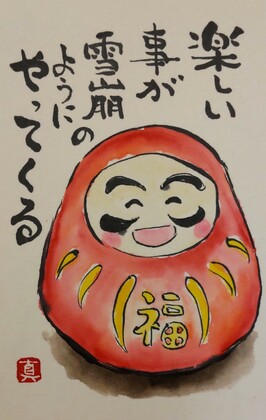 楽しい
事が
雪崩の
ように
やってくる
福
真